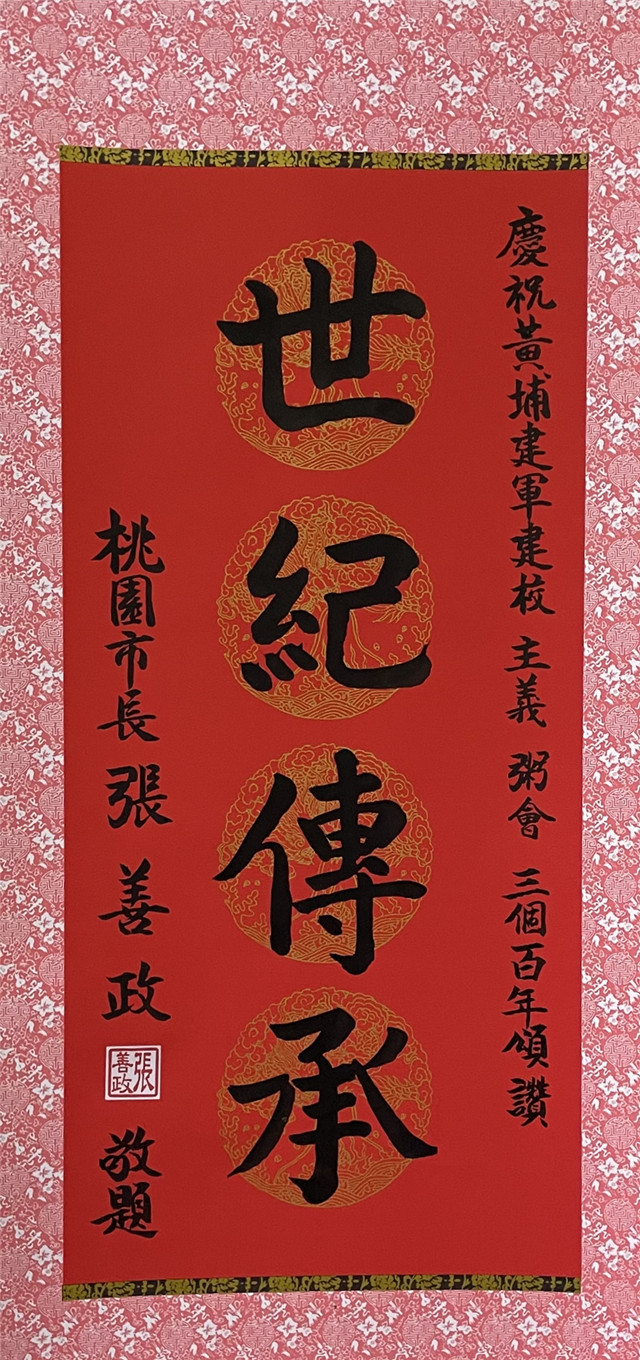 慶祝黃埔建軍建校 主義 粥會 三個百年頌讚
世紀傳承
桃園市長張善政
張善政
敬題